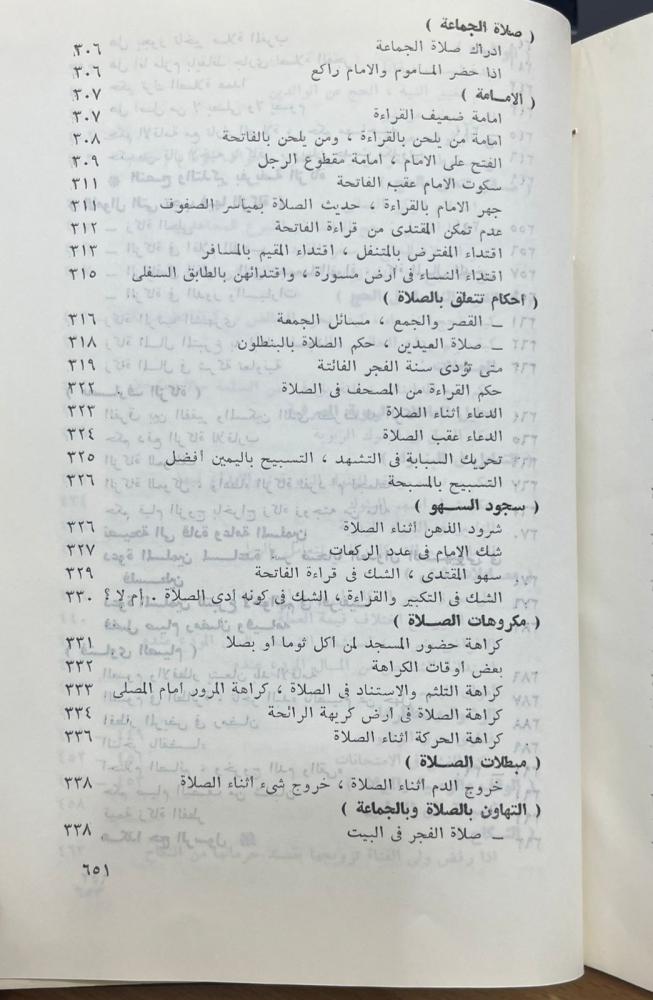 ( صلاة الجماعة )
ادراك صلاة الجماعة ٣٠٦
اذا حضر المـاموم والامام راكع ٣٠٦
( الامـامة ) ٣٠٧
امامة ضعيف القراءة ٣٠٧
امامة من يلحن بالقراءة ، ومن يلحن بالفاتحة ٣٠٨
الفتح على الامام ، امامة مقطوع الرجل ٣٠٩
سكوت الامام عقب الفاتحة ٣١١
جهر الامام بالقراءة ، حديث الصلاة بمياسر الصفوف ٣١١
عدم تمكن المقتدى من قراءة الفاتحة ٣١٢
اقتداء المفترض بالمتنفل ، اقتداء المقيم بالمسافر ٣١٣
اقتداء النساء فى ارض مسورة ، واقتدائهن بالطابق السفلى ٣١٥
( أحكام تتعلق بالصلاة )
ـ القصر والجمع ، مسائل الجمعة ٣١٦
ـ صلاة العيدين ، حكم الصلاة بالبنطلون ٣١٨
متى تؤدى سنة الفجر الفائتة ٣١٩
حكم القراءة من المصحف فى الصلاة ٣٢٢
الدعاء أثناء الصلاة ٣٢٣
الدعاء عقب الصلاة ٣٢٤
تحريك السبابة فى التشهد ، التسبيح باليمين أفضل ٣٢٥
التسبيح بالمسبحة ٣٢٦
( سجود السـهو )
شرود الذهن أثناء الصلاة ٣٢٦
شك الامام فى عدد الركعات ٣٢٧
سهو المقتدى ، الشك فى قراءة الفاتحة ٣٢٩
الشك فى التكبير والقراءة ، الشك فى كونه أدى الصلاة . أم لا ؟ ٣٣٠
( مكروهات الصـلاة )
كراهة حضور المسجد لمن أكل ثوما أو بصلا ٣٣١
بعض أوقات الكراهة ٣٣٢
كراهة التلثم والاستناد فى الصلاة ، كراهة المرور أمام المصلى ٣٣٣
كراهة الصلاة فى أرض كريهة الرائحة ٣٣٤
كراهة الحركة أثناء الصلاة ٣٣٦
( مبطلات الصـلاة )
خروج الدم أثناء الصلاة ، خروج شىء أثناء الصلاة ٣٣٨
( التهاون بالصلاة وبالجماعة )
ـ صلاة الفجر فى البيت ٣٣٨
٦٥١